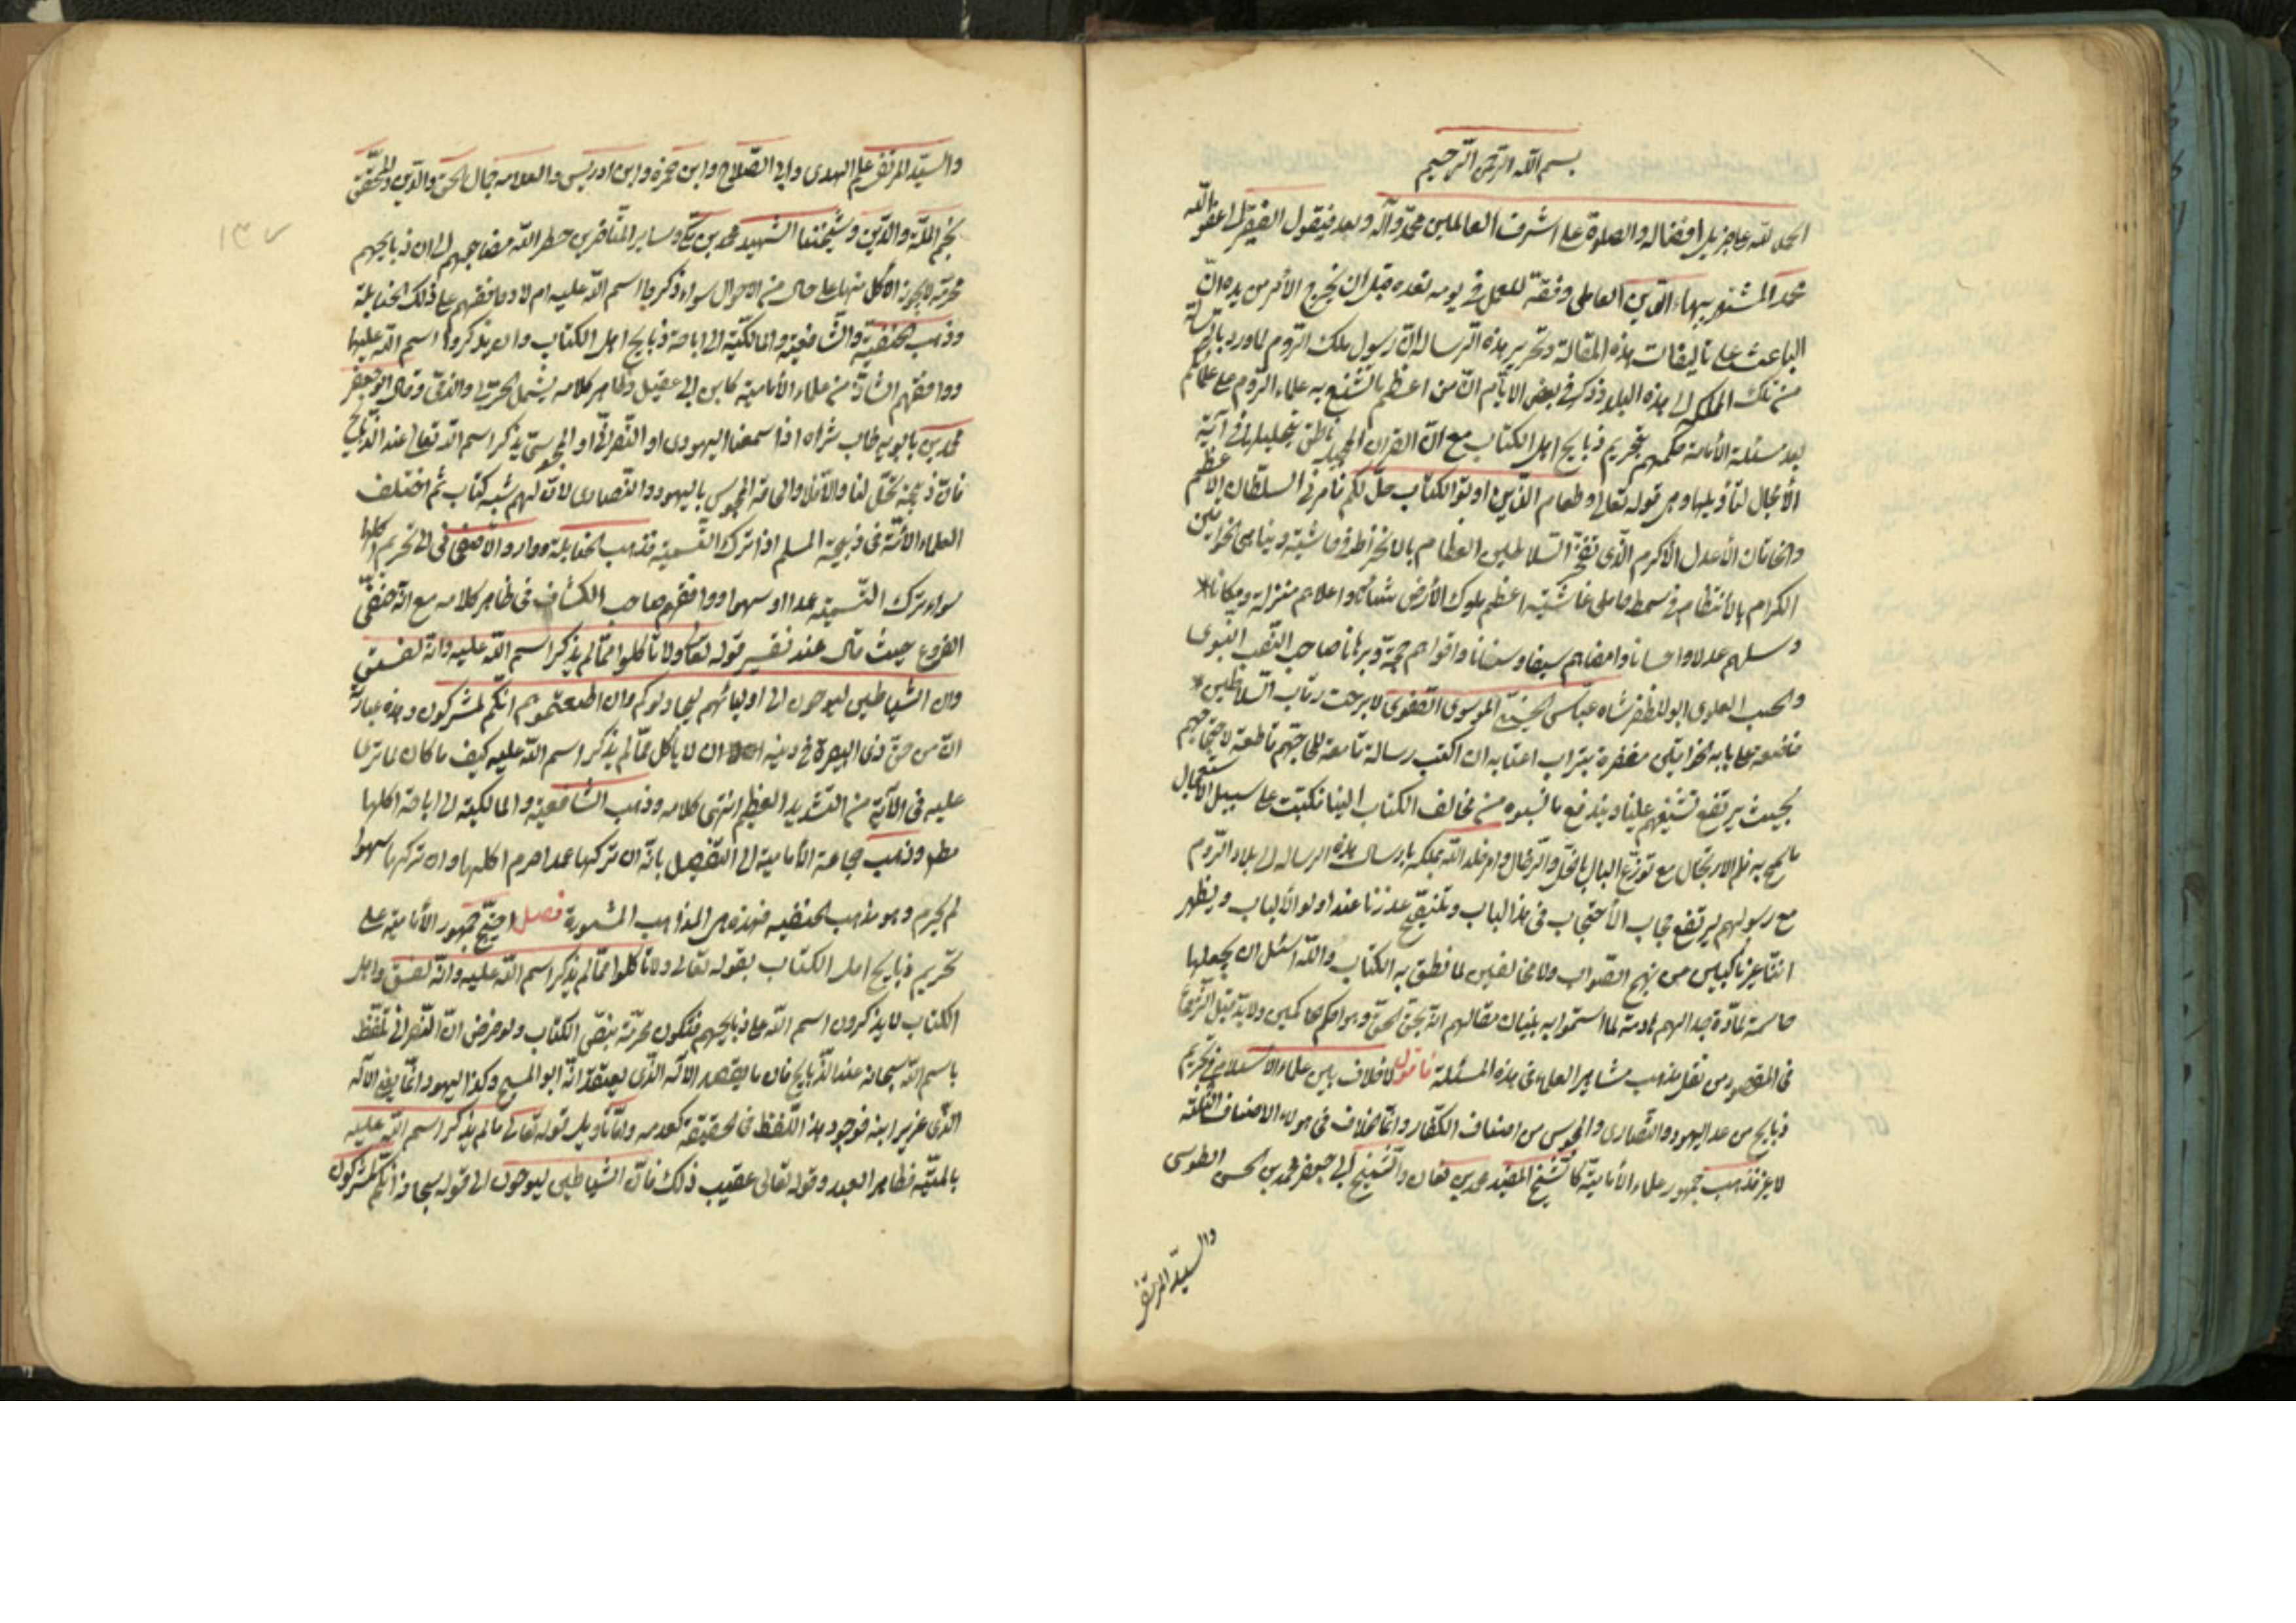 بسم الله الرحمن الرحيم
الحمد لله على جزيل افضاله والصلوة على اشرف العالمين محمد وآله وبعد فيقول الفقير الى عفو الله
محمد المشتهر ببهاء الدين العاملى وفقه للعمل فى يومه لغده قبل ان يخرج الأمر من يده انّ
الباعث على تاليفات هذه المقالة وتحرير هذه الرساله انّ رسول ملك الروم لما ورد بالرسالة
من تلك الملكه الى هذه البلاد ذكر فى بعض الايّام انّ من اعظم ما يشنع به علماء الروم على علمائكم
بعد مسئلة الأمامة حكمهم بتحريم ذبايح اهل الكتاب مع انّ القران المجيد ناطق بتحليلها فى آية
لا مجال لتأويلها وهى قوله تعالى وطعام الذين اوتوا الكتاب حلّ لكم فامرنى السلطان الأعظم
والخاقان الأعدل الأكرم الذى تفتخر السلاطين العظام بالانخراط فى حاشيته ويتباهى الخواقين
الكرام بالأنتظام فى سمط حاملى غاشيته اعظم ملوك الأرض شانا واعلاهم منزلة ومكانا*
وسلهم عدلا واحسانا وامضاهم سيفا وسنانا واقواهم حجة وبرهانا صاحب النسب النبوى
والحسب العلوى ابو المظفر شاه عباس الحسينى الموسوى الصفوى لابرحت رقاب السلاطين*
خاضعة على بابه الخواقين معفرة بتراب اعتابه ان اكتب رسالة قامعة للجاجتهم قاطعة لاحتجاجهم
بحيث يرتفع تشنيعهم علينا ويندفع ما نسبوه من مخالف الكتاب الينا فكتبت على سبيل الاستعجال
ما سمح به قلم الارتجال مع توزع البال بالحل والترحال وامر خلد الله ملكه بارسال هذه الرساله الى بلاد الروم
مع رسولهم ليرتفع حجاب الأحتجاب فى هذا الباب ويتضح عذرنا عند اولو الألباب ويظهر
انّنا غير ناكبين عن نهج الصواب ولا مخالفين لما نطق به الكتاب والله اسئل ان يجعلها
حاسمة لمادّة جدالهم هادمة لما استحموا به بنيان مقالهم انه يحق الحق وهو احكم الحاكمين ولابد قبل الشروع
فى المقصود من نقل مذهب مشاهير العلماء فى هذه المسئلة فاقول لا خلاف بين علماء الأسلام فى تحريم
ذبايح من عدا اليهود والنصارى والمجوس من اصناف الكفار وانما الخلاف فى هولاء الاصناف الثلثة
لا غير فذهب جمهور علماء الأمامية كالشيخ المفيد محمد بن نعمان والشيخ ابى جعفر محمد بن الحسن الطوسى
والسيد المرتضى
١٣٧
والسيد المرتضى علم الهدى وابى الصلاح وابن حمزة وابن ادريس والعلامه جمال الحق والدين والمحقق
نجم الملة والدين وشيخنا الشهيد محمد بن مكى وساير المتأخرين عطر الله مضاجعهم الى ان ذبايحهم
محرمة لا يجوز الأكل منها على حال من الاحوال سواء ذكروا اسم الله عليه ام لا ووافقهم على ذلك الحنابلة
وذهب الحنفية والشافعية والمالكية الى اباحة ذبايح اهل الكتاب وان لم يذكروا اسم الله عليها
ووافقهم الشاذ من علماء الأمامية كابن ابى عقيل وظاهر كلامه يشمل الحربى والذمى وقال ابو جعفر
محمد بن بابويه طاب ثراه اذا سمعنا اليهودى او النصرانى او المجوسى يذكر اسم الله تعالى عند الذبح
فان ذبيحته تحل لنا والا فلا والحاقه المجوس باليهود والنصارى لان لهم شبه كتاب ثم اختلف
العلماء الأئمة فى ذبيحة المسلم اذا ترك التسمية فذهب الحنابلة وداود الأصفهانى الى تحريم اكلها
سواء ترك التسمية عمدا او سهوا ووافقهم صاحب الكشاف فى ظاهر كلامه مع انّه حنفى
الفروع حيث قال عند تفسير قوله تعالى ولا تأكلوا ممّا لم يذكر اسم الله عليه وانه لفسق
وان الشياطين ليوحون الى اوليائهم ليجادلوكم وان اطعتموهم انّكم لمشركون وهذه عبارته
انّ من حق ذى البصيرة فى دينه ان لا يأكل ممّا لم يذكر اسم الله عليه كيف ما كان لما ترى
عليه فى الآية من التشديد العظيم انتهى كلامه وذهب الشافعية والمالكية الى اباحة اكلها
مطلقا وذهب جماعة الأمامية الى التفصيل بانّه ان تركها عمدا حرم اكلها وان تركها سهوا
لم يحرم وهو مذهب الحنفيه فهذه هى المذاهب المشهورة فصل احتجّ جمهور الأمامية على
تحريم ذبايح اهل الكتاب بقوله تعالى ولا تأكلوا ممّا لم يذكر اسم الله عليه وانّه لفسق واهل
الكتاب لا يذكرون اسم الله على ذبايحهم فتكون محرّمة بنصّ الكتاب ولو فرض انّ النصرانى تلفّظ
باسم الله سبحانه عند الذبايح فان ما يقصد الآله الذى يعتقد انّه ابو المسيح وكذا اليهود انما يعنى الآله
الذى عزير ابنه فوجود هذا اللفظ فى الحقيقة كعدمه وامّا تأويل قوله تعالى ما لم يذكر اسم الله عليه
بالميتة فظاهر البعد وقوله تعالى عقيب ذلك فانّ الشياطين ليوحون الى قوله سبحانه انّكم لمشركون